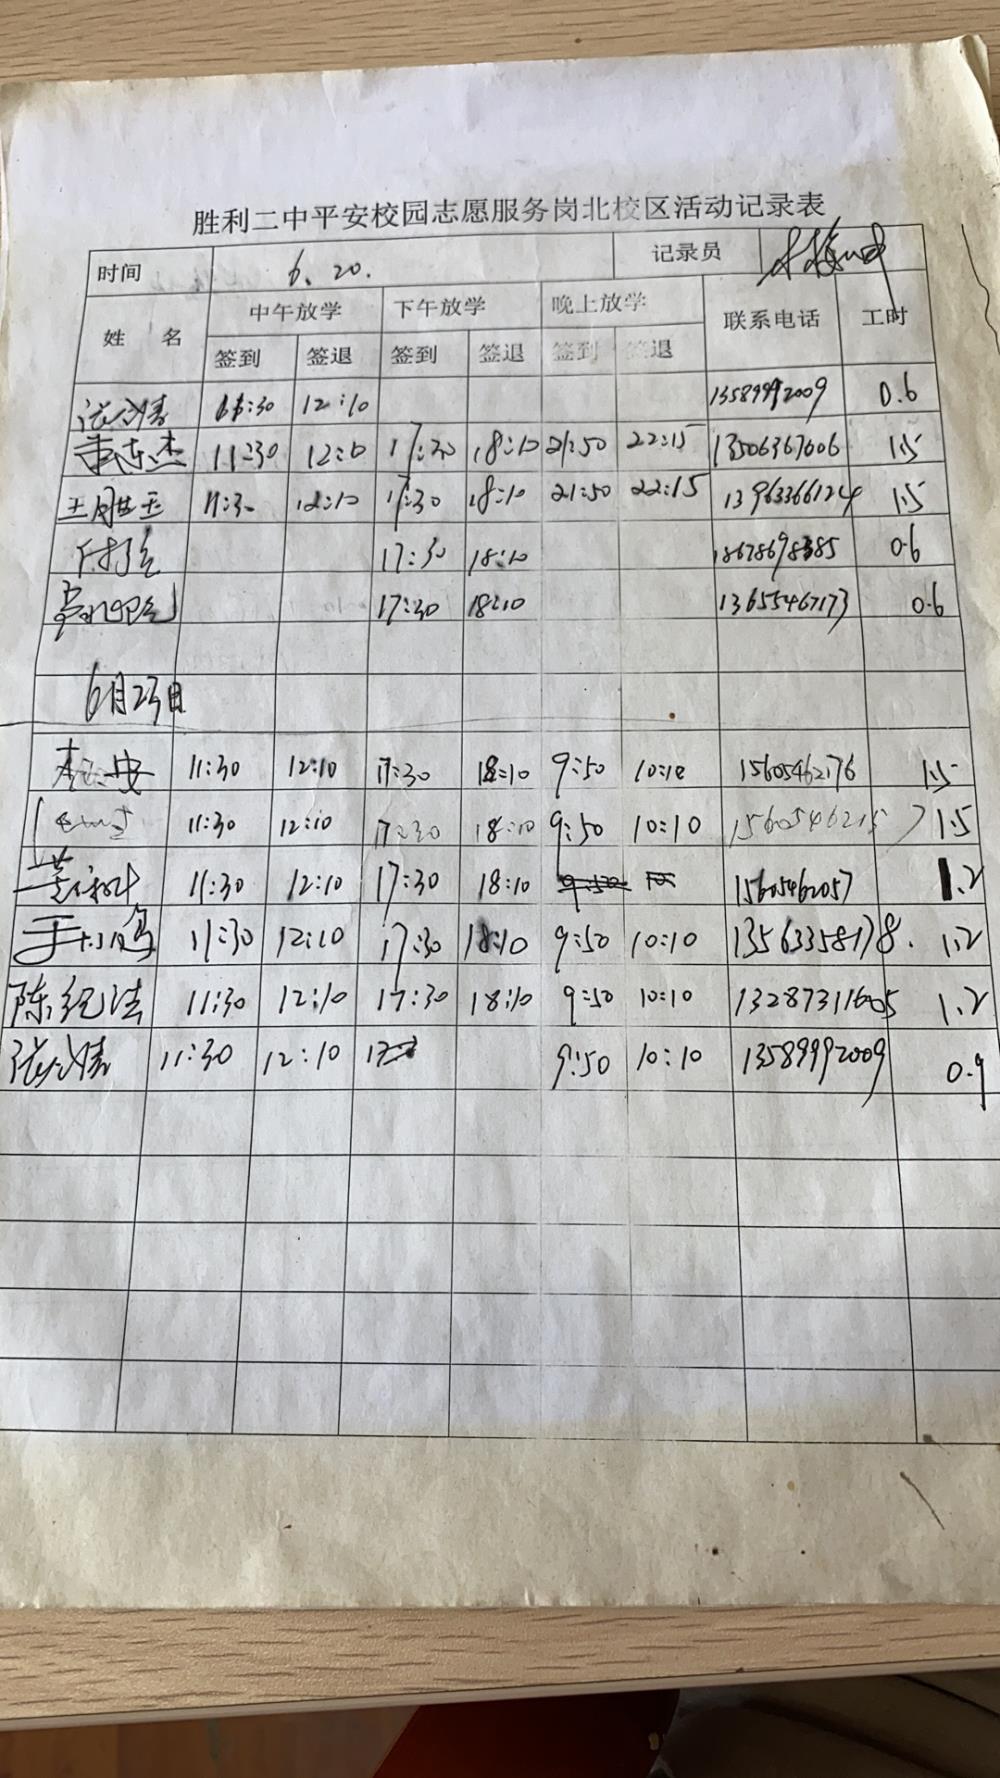 胜利二中平安校园志愿服务岗北校区活动记录表
时间 6.20. 记录员
姓 名 中午放学 下午放学 晚上放学 联系电话 工时
签到 签退 签到 签退 签到 签退
11:30 12:10 13589992009 0.6
11:30 12:10 17:30 18:10 21:50 22:15 13506367606 1.5
王胜玉 11:30 12:10 17:30 18:10 21:50 22:15 13963366124 1.5
17:30 18:10 18678698385 0.6
17:30 18:10 13655467173 0.6
6月23日
11:30 12:10 17:30 18:10 9:50 10:10 15605462176 1.5
11:30 12:10 17:30 18:10 9:50 10:10 1.5
11:30 12:10 17:30 18:10 15605462057 1.2
11:30 12:10 17:30 18:10 9:50 10:10 13563358178. 1.2
陈纪法 11:30 12:10 17:30 18:10 9:50 10:10 13287311605 1.2
11:30 12:10 9:50 10:10 13589992009 0.9